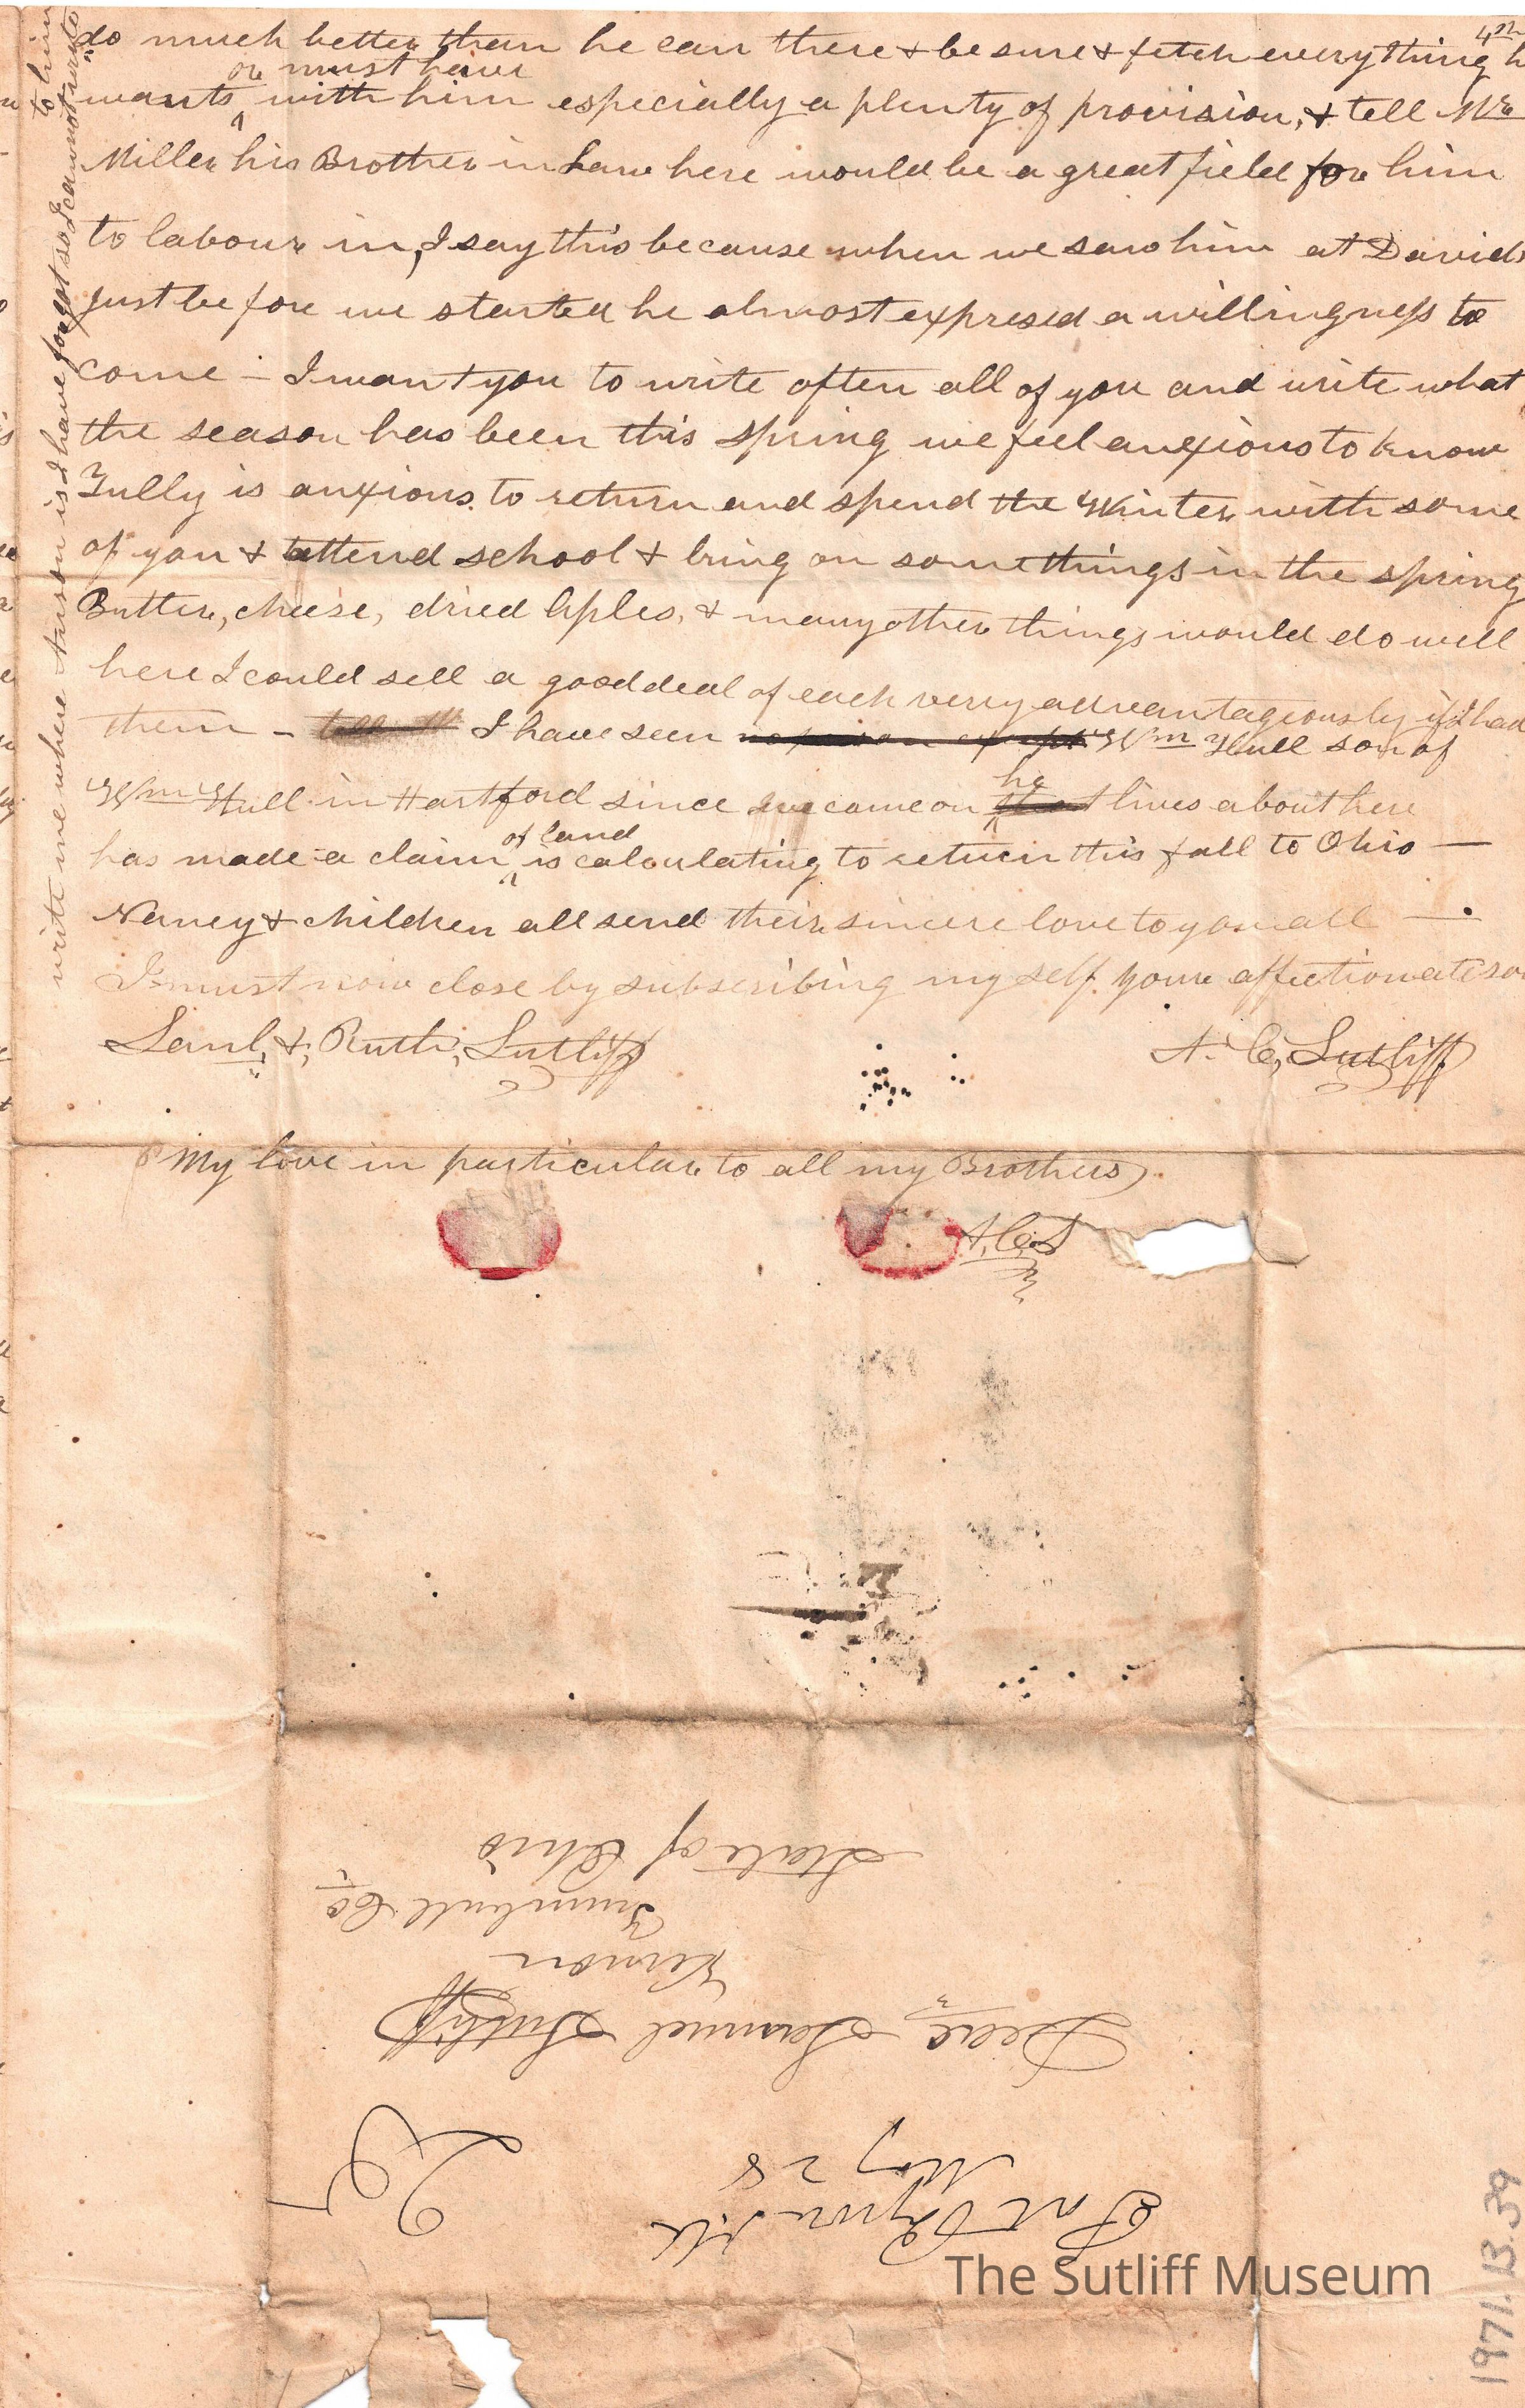 4th
do much better than he can there & be sure & fetch everything h
or must have
wants ^ with him especially a plenty of provision, & tell Mr
Miller his Brother in Law here would be a great field for him
to labour in, I say this because when we saw him at Davids
just before we started he almost expresed a willingness to
come – I want you to write often all of you and write what
the season has been this spring we feel anxious to know
Fully is anxious to return and spend the Winter with some
of you & attend school & bring on some things in the spring
Butter, cheese, dried Aples, & many other things would do well
here I could sell a good deal of each very advantageously if I had
them – I have seen Wm Hull son of
he
Wm Hull in Hartford since we came on ^ lives about here
of land
has made a claim ^ is calculating to return this fall to Ohio —
Nancy & children all send their sincere love to you all — .
I must now close by subscribing my self your affectionate so
Saml, & Ruth, Sutliff
A. C. Sutliff
My love in particular to all my Brothers
A. C. S
write me where Anson is I have forgot so I cannot write
to him
Port Byron Ill
May 28
25
Deac Samuel Sutliff
Vernon
Trumbull Co
State of Ohio
The Sutliff Museum
1971.13.39